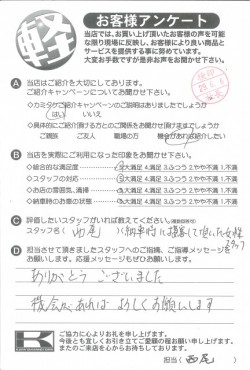 軽
お客様アンケート
当店では、お買い上げ頂いたお客様の声を可能
な限り現場に反映し、お客様により良い商品と
サービスを提供する事に努めています。
大変お手数ですが是非お声をお聞かせ下さい。
A 当店はご紹介を大切にしております。
ご紹介キャンペーンについてお聞かせ下さい。
◇カミタケご紹介キャンペーンのご説明はありましたでしょうか
はい いいえ
◇具体的にご紹介頂ける方とのご関係をお聞かせ頂けますでしょうか
ご親族 ご友人 職場の方 機会があれば紹介したい
B 当店を実際にご利用になった印象をお聞かせ下さい。
◇総合的な満足度 5.大満足 4.満足 3.ふつう 2.やや不満 1.不満
◇スタッフの対応 5.大満足 4.満足 3.ふつう 2.やや不満 1.不満
◇お店の雰囲気、清掃 5.大満足 4.満足 3.ふつう 2.やや不満 1.不満
◇納車時のお車の状態 5.大満足 4.満足 3.ふつう 2.やや不満 1.不満
C 評価したいスタッフがいれば教えてください。(複数回答可)
スタッフ名( 西尾 )( 納車時に接客して頂いた女性スタッフ
D 担当させて頂きましたスタッフへのご指摘、ご指導メッセージを
お願いします。応援メッセージもぜひお願い致します。
ありがとうございました
機会があればよろしくお願いします
K
ご協力に心よりお礼を申し上げます。
今後とも宜しくお引き立てご愛顧の程お願い申し上げます。
またのご来店を心からお待ちしております。
担当( 西尾 )